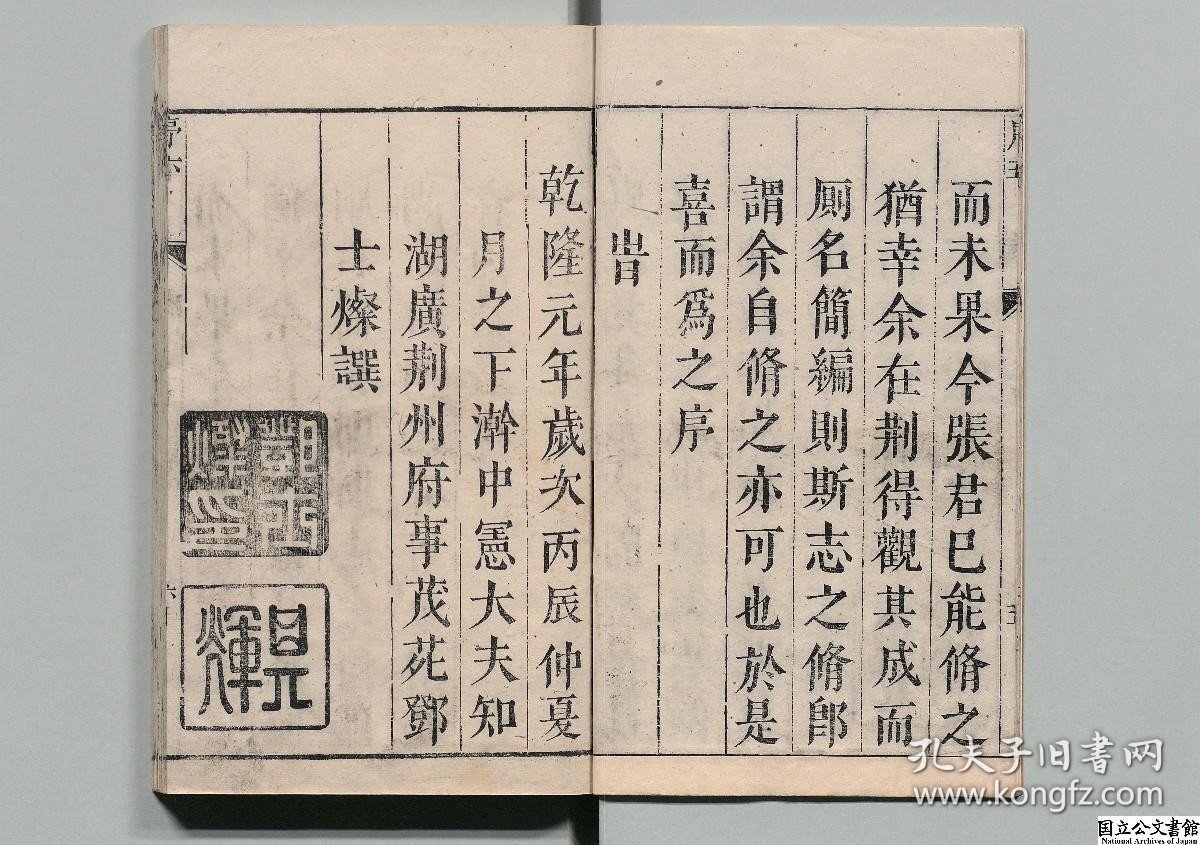 而未果今張君已能脩之
猶幸余在荆得觀其成而
厠名簡編則斯志之脩郎
謂余自脩之亦可也於是
喜而爲之序
旹
乾隆元年歲次丙辰仲夏
月之下澣中憲大夫知
湖廣荆州府事茂苑鄧
士燦譔
序六
六
五
孔夫子旧书网
www.kongfz.com
国立公文書館
National Archives of Japan